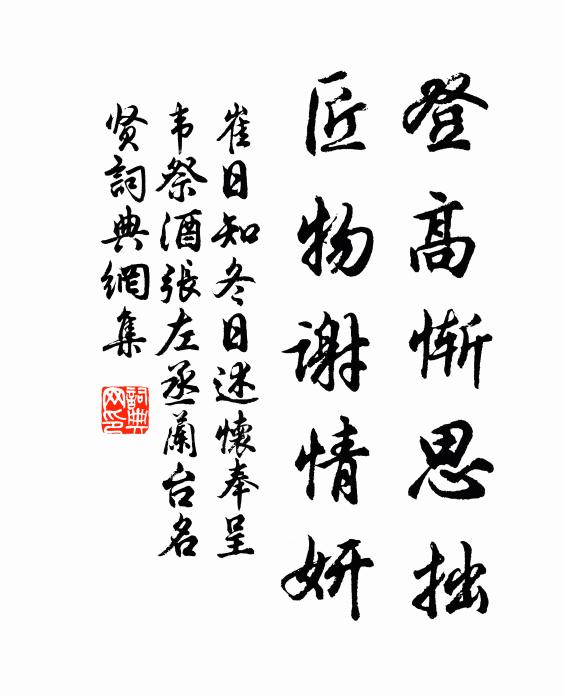 登高惭思拙
匠物谢情妍
崔日知冬日述懷奉呈
韦祭酒張左丞蘭台名
贤詞典網集
詞典
网印